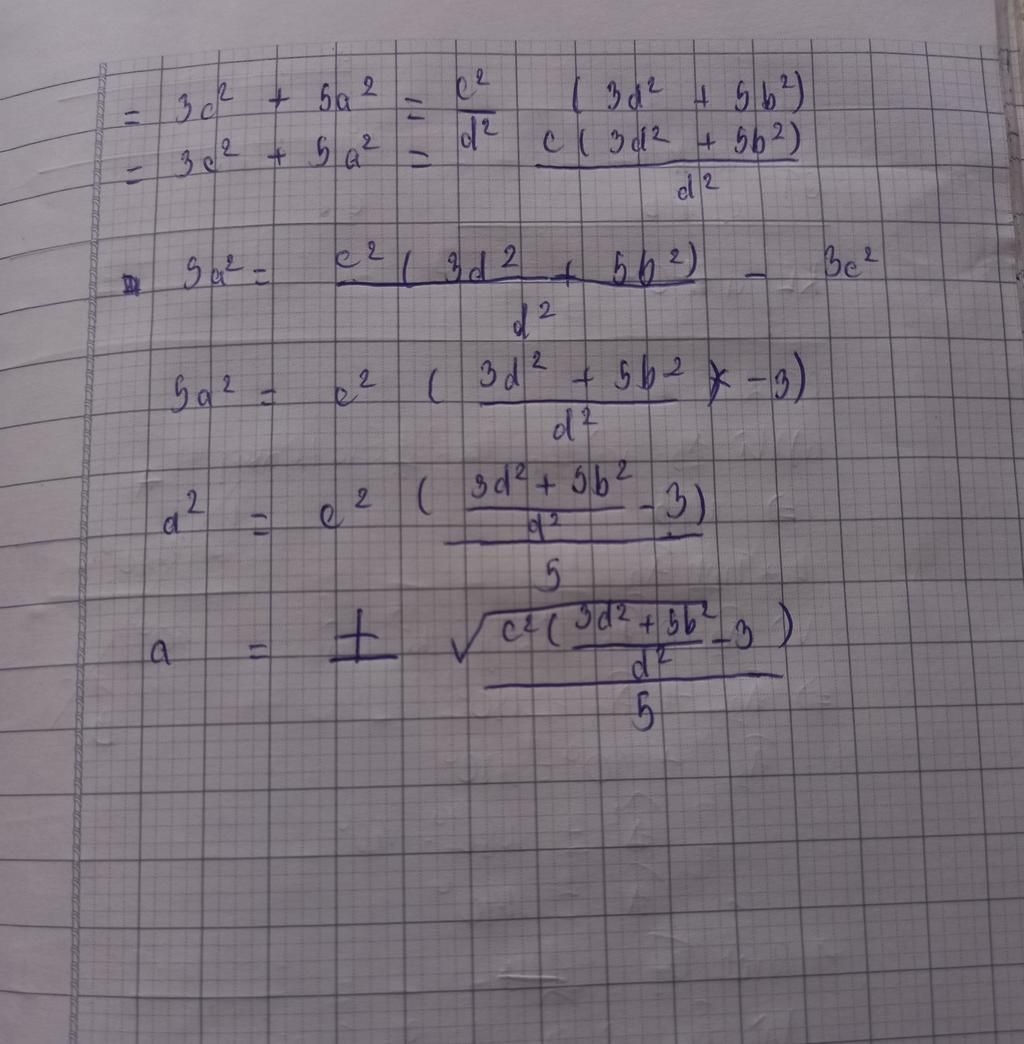 = 3c² + 5a² = c²/d² (3d² + 5b²)
= 3c² + 5a² = c(3d² + 5b²)/d²
5a² = c²(3d² + 5b²)/d² - 3c²
5a² = c² ((3d² + 5b²)/d² - 3)
a² = c² ((3d² + 5b²)/d² - 3)/5
a = ± √(c²((3d² + 5b²)/d² - 3)/5)